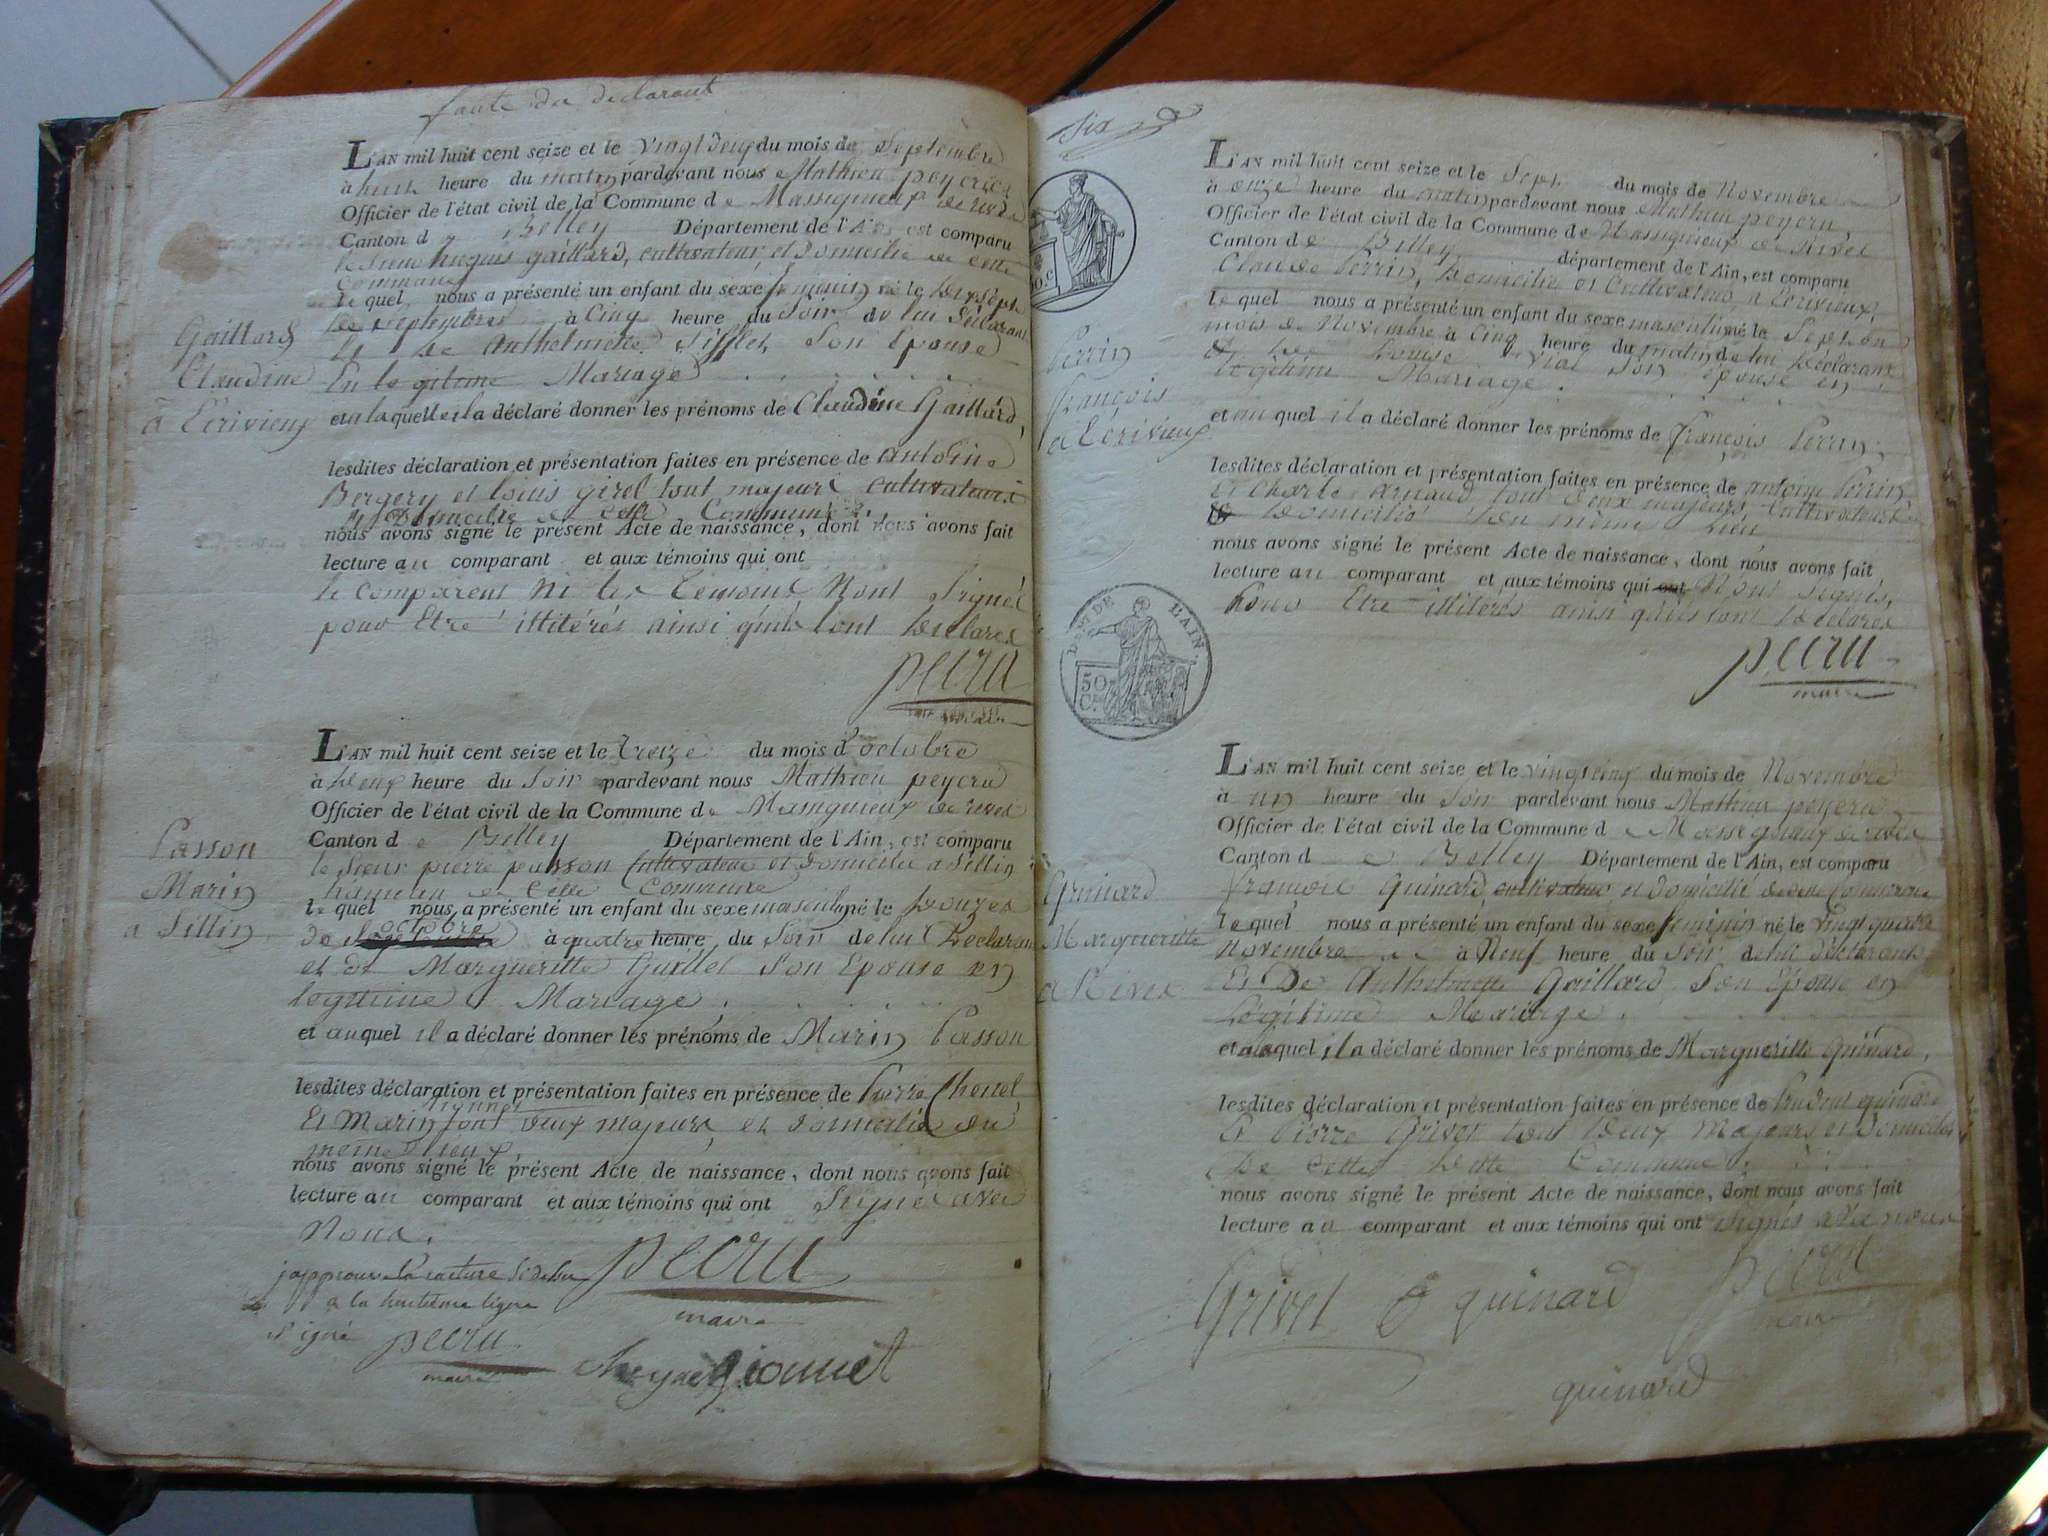 faute du declarant
L'AN mil huit cent seize et le vingt deux du mois de Septembre
à huit heure du matin pardevant nous Mathieu peycru
Officier de l'état civil de la Commune de Massigneux de rives
Canton de Belley Département de l'Ain est comparu
le Sieur hugues gaillard, cultivateur et Domicilie de cette
Commune
le quel nous a présenté un enfant du sexe feminin né le dix sept
de septembre à Cinq heure du Soir de lui Déclarant
Et de Anthelmette Sifflet Son Epouse
En legitime Mariage
et a laquelle il a déclaré donner les prénoms de Claudine Gaillard,
Gaillard
Claudine
à Ecrivieux
lesdites déclaration et présentation faites en présence de Antoine
Bergery et louis girel tout majeurs cultivateurs
et Domicilie de cette Commune
nous avons signé le présent Acte de naissance, dont nous avons fait
lecture au comparant et aux témoins qui ont
le comparent Ni les temoins Nont Signés
pour Etre illitérés ainsi quils lont declarer
pecru
maire
L'AN mil huit cent seize et le treize du mois d'octobre
à deux heure du Soir pardevant nous Mathieu peycru
Officier de l'état civil de la Commune de Massigneux de rives
Canton de Belley Département de l'Ain, est comparu
le Sieur pierre passon Cultivateur et domicilie a Sillin
hameau de Cette Commune
le quel nous a présenté un enfant du sexe masculin né le douze
octobre
de à quatre heure du Soir de lui Declarant
et de Margueritte Guillet Son Epouse en
legitime Mariage
et auquel il a déclaré donner les prénoms de Marin Passon
Passon
Marin
a Sillin
lesdites déclaration et présentation faites en présence de Pierre
Et Marin tout deux majeurs et domicilie du
meme lieux
nous avons signé le présent Acte de naissance, dont nous avons fait
lecture au comparant et aux témoins qui ont Signé avec
Nous.
pecru
maire
j'approuve la rature Si dessu
a la huitieme ligne
signé pecru
maire
gionnet
Six
L'AN mil huit cent seize et le Sept du mois de Novembre
à onze heure du matin pardevant nous Mathieu peycru
Officier de l'état civil de la Commune de Massigneux de Rives
Canton de Belley département de l'Ain, est comparu
Claude Perrin, Domicilie et Cultivateur a Ecrivieux,
le quel nous a présenté un enfant du sexe masculin né le Sept du
mois de Novembre à Cinq heure du matin de lui Déclarant
Et de Louise Vial Son épouse en
legitime Mariage.
et au quel il a déclaré donner les prénoms de François Perrin,
Perrin
françois
a Ecrivieux
lesdites déclaration et présentation faites en présence de antoine Perrin
Et Charle arnaud tout deux majeurs, Cultivateurs
Domicilié du même Lieu
nous avons signé le présent Acte de naissance, dont nous avons fait
lecture au comparant et aux témoins qui ont Nont signés,
Pour Etre illiterés ainsi qu'ils lont Declarer
pecru
maire
DEP.T DE L'AIN.
50 C.
L'AN mil huit cent seize et le vingt cinq du mois de Novembre
à un heure du Soir pardevant nous Mathieu peycru
Officier de l'état civil de la Commune de Massigneux de rives
Canton de Belley Département de l'Ain, est comparu
françois Guinard, cultivateur et domicilié de cette Commune
le quel nous a présenté un enfant du sexe feminin né le vingt quatre
Novembre à Neuf heure du Soir de lui déclarant
Et De Anthelmette Gaillard Son Epouse en
Légitime Mariage.
et a laquel il a déclaré donner les prénoms de Margueritte Guinard,
Guinard
Margueritte
a Rives
lesdites déclaration et présentation faites en présence de Prudent guinard
Et Pierre Grivet tout deux Majeurs et Domicilies
De Cette dette Commune
nous avons signé le présent Acte de naissance, dont nous avons fait
lecture au comparant et aux témoins qui ont signés avec nous
Grivet guinard pecru
maire
guinard